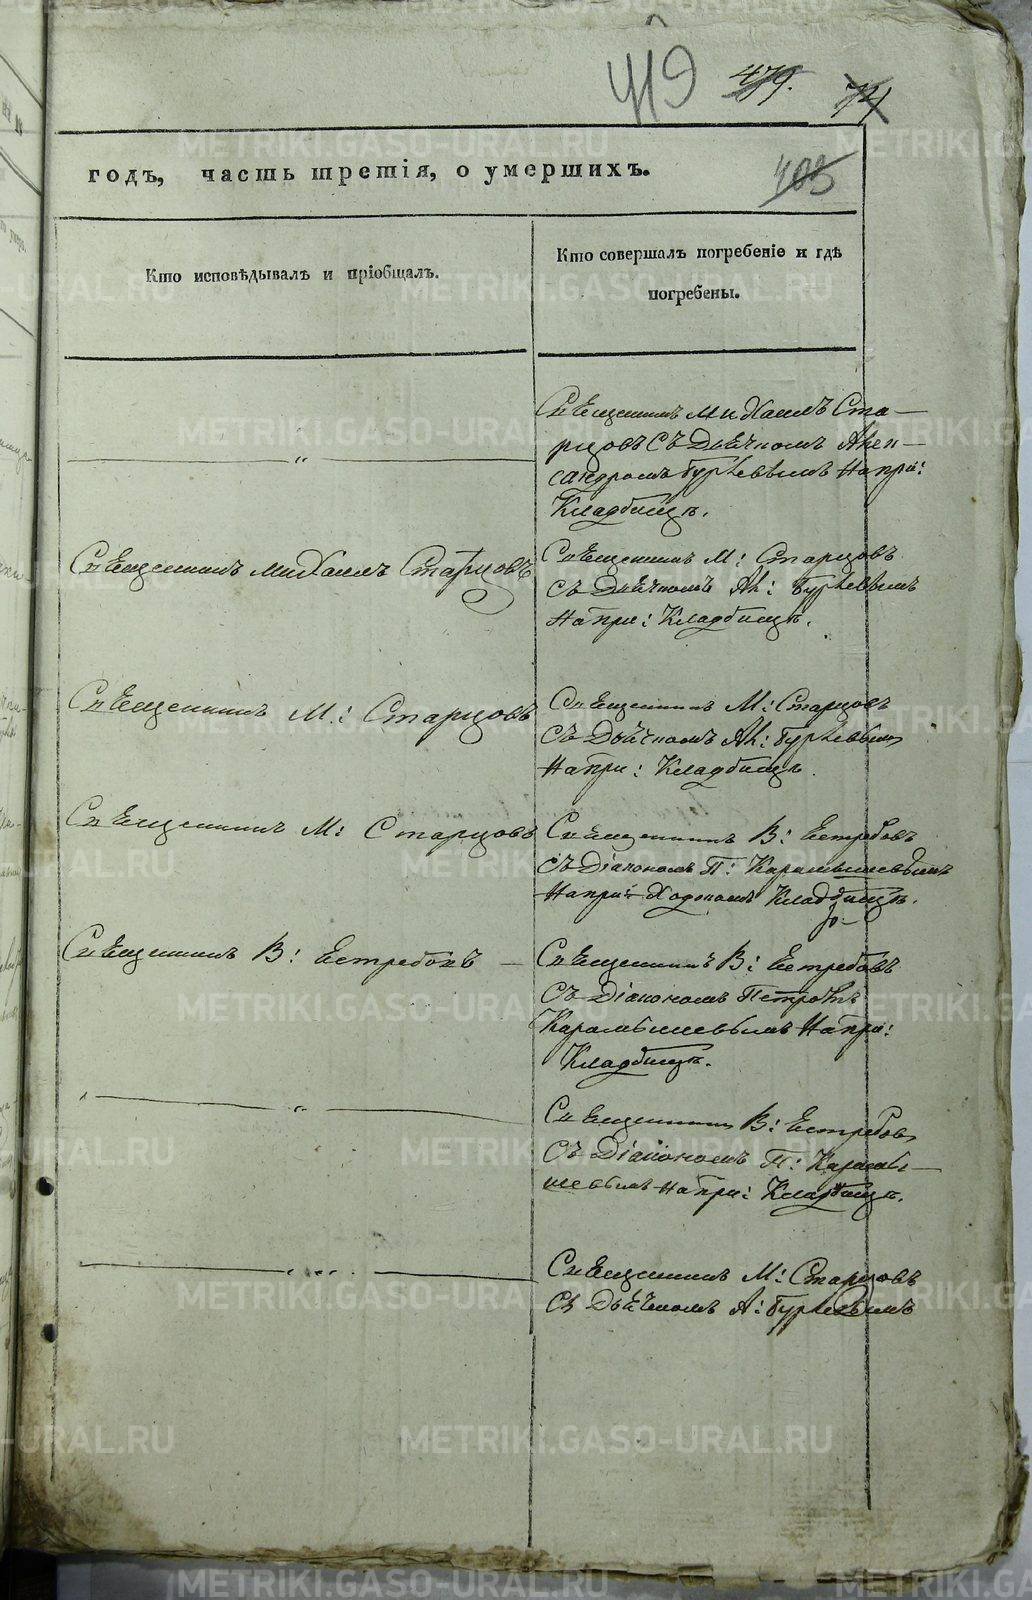 419 479. 74
403
годъ, часть третія, о умершихъ.
Кто исповѣдывалъ и пріобщалъ.
Кто совершалъ погребеніе и гдѣ
погребены.
Священникъ Михаилъ Ста-
рцовъ Съ Дьячкомъ Алек-
сандромъ Гурьевымъ На при:
Кладбищѣ.
Священникъ Михаилъ Старцовъ
Священникъ М: Старцовъ
Съ Дьячкомъ Ал: Гурьевымъ
На при: Кладбищѣ.
Священникъ М: Старцовъ
Священникъ М: Старцовъ
Съ Дьячкомъ Ал: Гурьевым
На при: Кладбищѣ
Священникъ М: Старцовъ
Священникъ В: Ястребовъ
Съ Діакономъ П: Карамышевымъ
На при Ходскомъ Кладбищѣ.
Священникъ В: Ястребовъ
Священникъ В: Ястребовъ
Съ Діакономъ Петромъ
Карамышевымъ На при:
Кладбищѣ.
Священникъ В: Ястребов
Съ Діакономъ П: Карамы-
шевымъ На при: Кладбищѣ.
Священникъ М: Старцовъ
Съ Дьячкомъ А: Гурьевымъ
METRIKI.GASO-URAL.RU